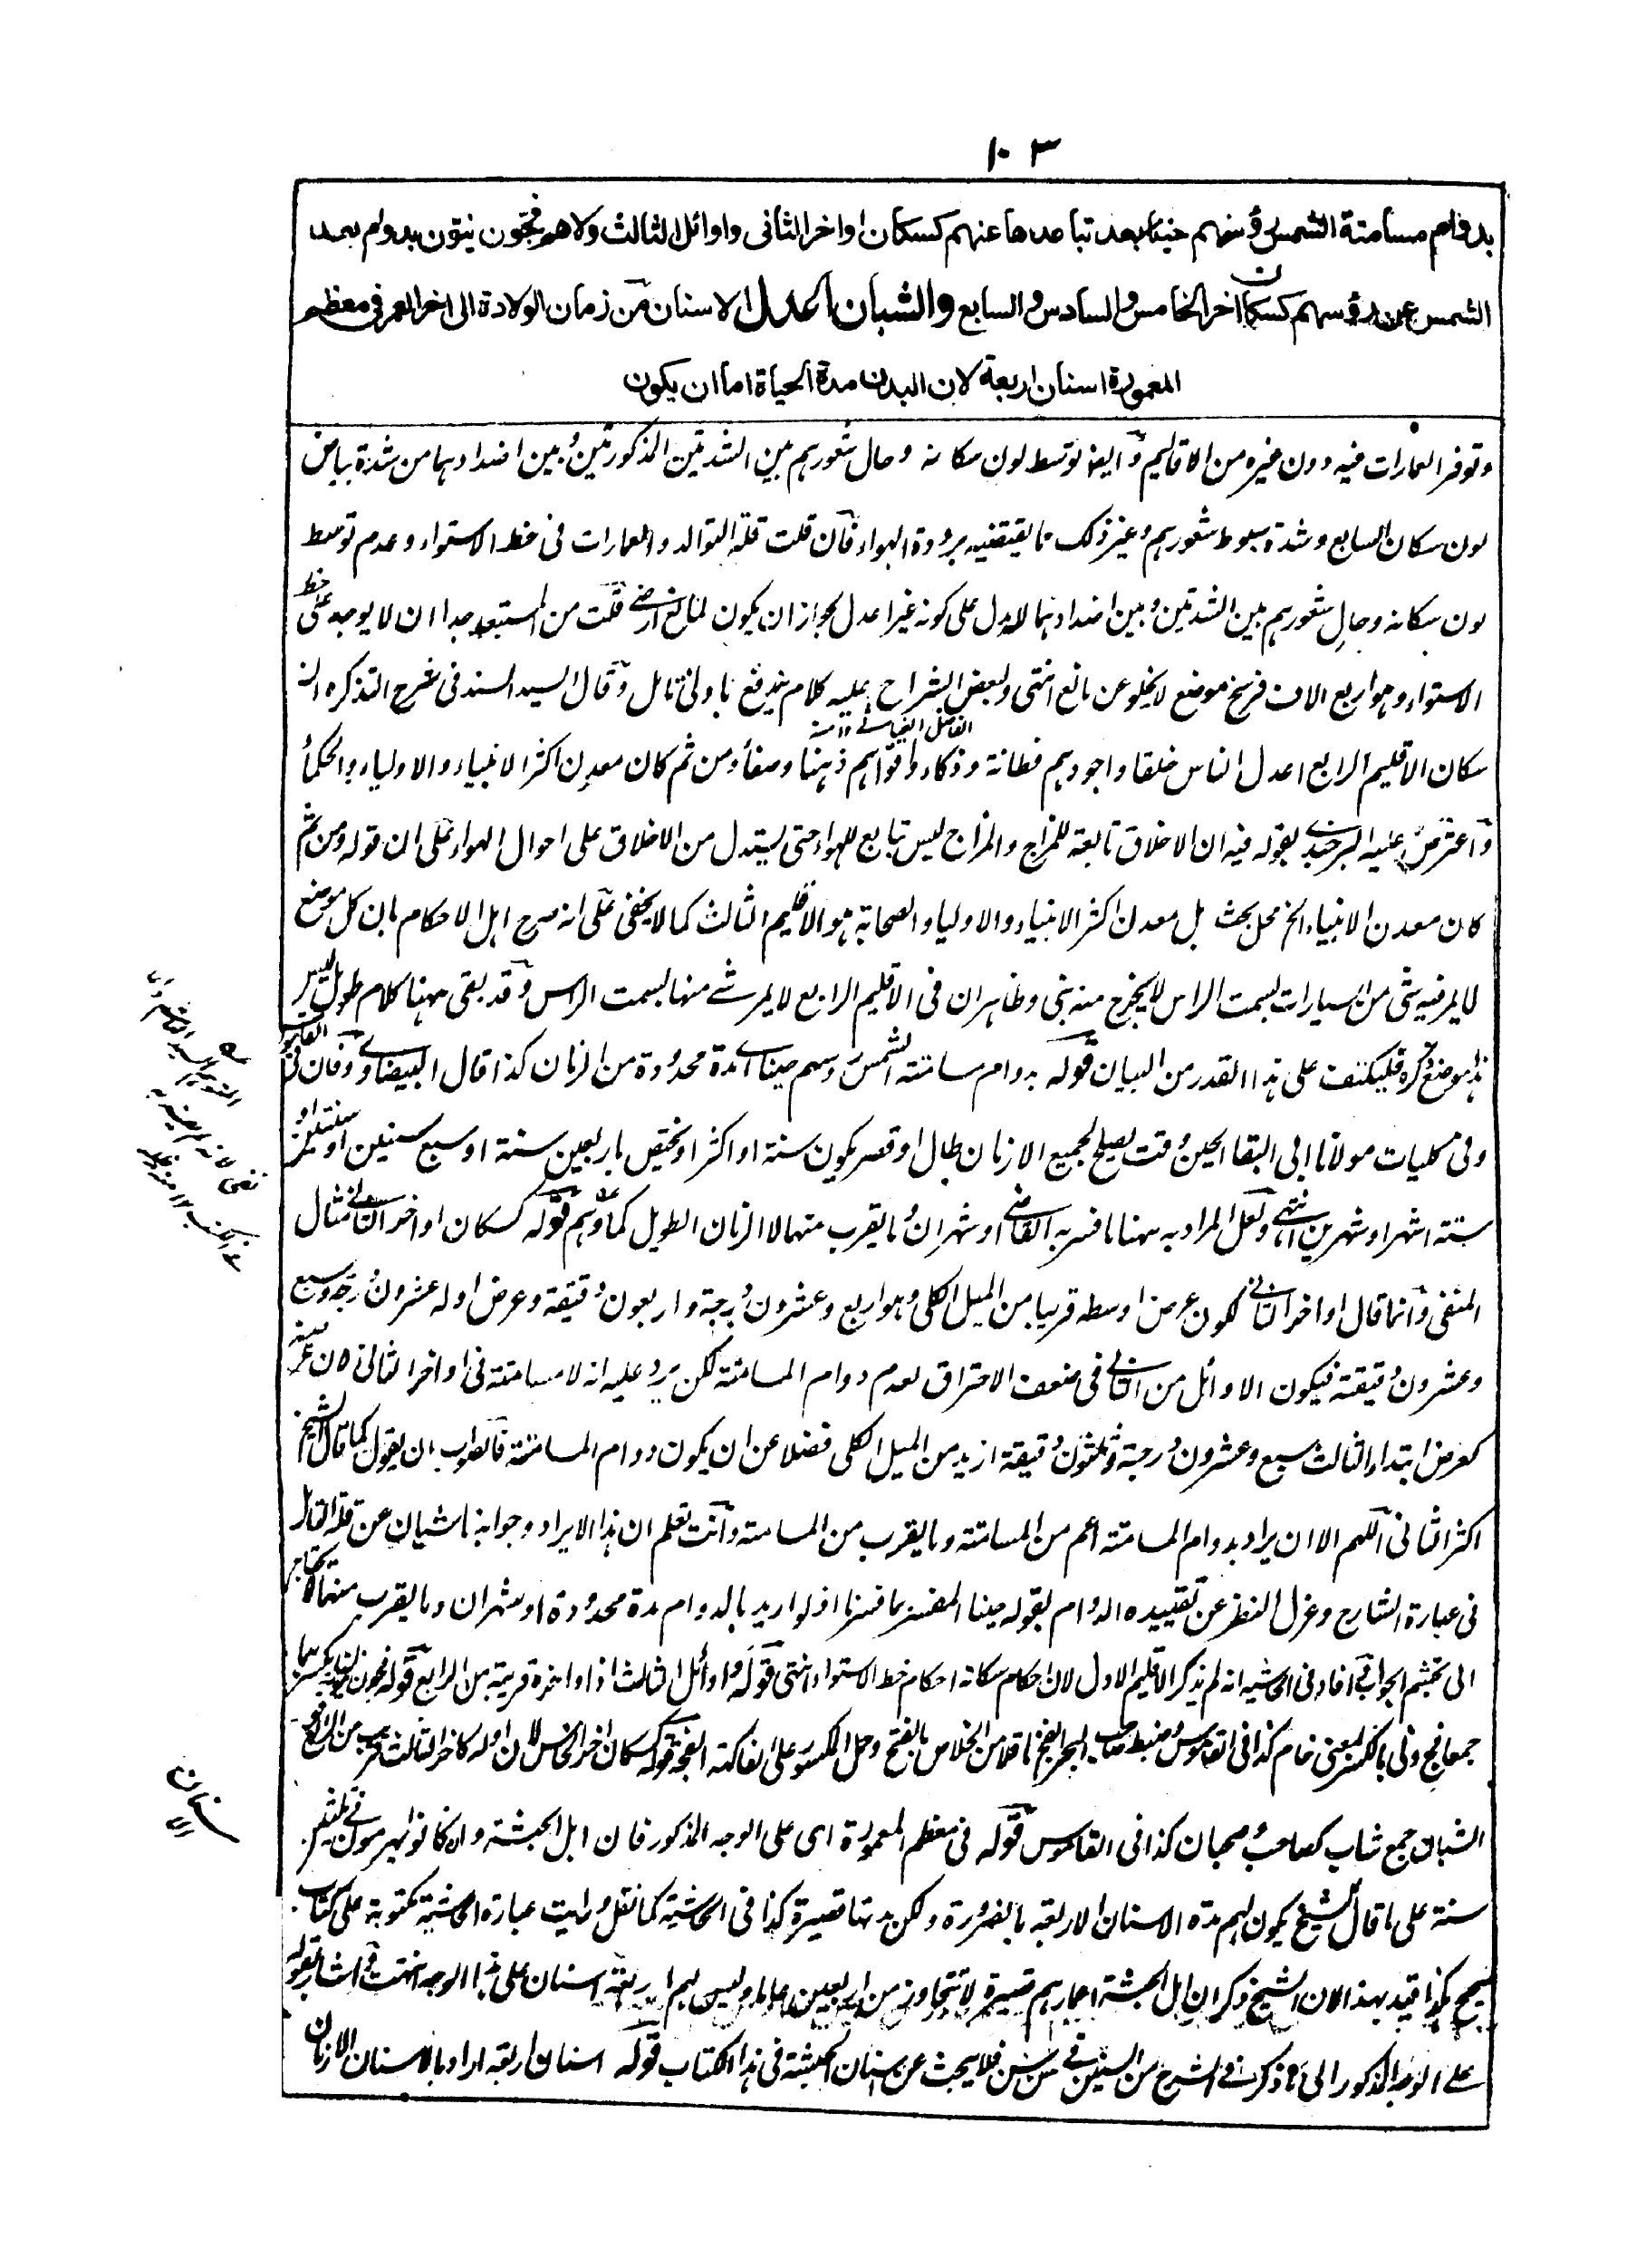 ١٠٣
بدوام مسامتة الشمس رؤسهم حينا بعد تباعدها عنهم كسكان اواخر الثاني واوائل الثالث ولا هم فجون نيؤن بدوام بعد
الشمس عن رؤسهم كسكان اخر الخامس والسادس والسابع والشبان اعدل الاسنان من زمان الولادة الى اخر العمر في معظم
المعمورة اسنان اربعة لان البدن مدة الحياة اما ان يكون
وتوفر العمارات فيه دون غيره من الاقاليم وايضا توسط لون سكانه وحال شعورهم بين الشدتين المذكورتين وبين اضدادهما من شدة بياض
لون سكان السابع وشدة سبوط شعورهم وغير ذلك ما يقتضيه برودة الهواء فان قلت قلة التوالد والعمارات في خط الاستواء وعدم توسط
لون سكانه وحال شعورهم بين الشدتين وبين اضدادهما لا يدل على كونه غير اعدل لجواز ان يكون لمانع ارضي قلت من المستبعد جدا ان لا يوجد على خط
الاستواء وهو اربع الاف فرسخ موضع لا يخلو عن مانع انتهى ولبعض الشراح عليه كلام يندفع بادنى تامل وقال السيد السند في شرح التذكره ان
سكان الاقليم الرابع اعدل الناس خلقا واجودهم فطانة وذكاء واقواهم ذهنا وصفاء ومن ثم كان معدن اكثر الانبياء والاولياء والحكماء
واعترض عليه البرجندي بقوله فيه ان الاخلاق تابعة للمزاج والمزاج ليس تابع للهواء حتى يستدل من الاخلاق على احوال الهواء على ان قوله ومن ثم
كان معدن الانبياء الخ محل بحث بل معدن اكثر الانبياء والاولياء والصحابة هو الاقليم الثالث كما لا يخفى على انه صرح اهل الاحكام بان كل موضع
لا يمر فيه شئ من السيارات بسمت الراس لا يخرج منه نبي وظاهر ان في الاقليم الرابع لا يمر شئ منها بسمت الراس وقد بقي ههنا كلام طويل ليس
هذا موضع ذكره فليكتف على هذا القدر من البيان قوله بدوام مسامتة الشمس رؤسهم حينا اي مدة محدودة من الزمان كذا قال البيضاوي
وفي كليات مولانا ابي البقا الحين وقت يصلح لجميع الازمان طال او قصر يكون سنة او اكثر او يختص باربعين سنة او سبع سنين او سنتين او
ستة اشهر او شهرين انتهى ولعل المراد به ههنا ما فسر به القاضي او شهران وما يقرب منهما لا الزمان الطويل كما وهم قوله كسكان اواخر الثاني مثال
المنفي وانما قال اواخر الثاني لكون عرض اوسطه قريبا من الميل الكلي وهو اربع وعشرون درجة واربعون دقيقة وعرض اوله عشرون درجة وسبع
وعشرون دقيقة فيكون الاوائل من الثاني في ضعف الاحتراق لعدم دوام المسامتة لكن يرد عليه انه لا مسامتة في اواخر الثاني لان عرضه
كعرض ابتداء الثالث سبع وعشرون درجة وثلثون دقيقة ازيد من الميل الكلي فضلا عن ان يكون دوام المسامتة فالصواب ان يقول كما قال الشيخ
اكثر الثاني اللهم الا ان يراد بدوام المسامتة اعم من المسامتة وما يقرب من المسامتة وانت تعلم ان هذا الايراد وجوابه ناشيان عن قلة التامل
في عبارة الشارح وعزل النظر عن تقييده الدوام بقوله حينا المفسر بما فسرنا اذ لو اريد بالدوام مدة محدودة او شهران وما يقرب منهما لا يحتاج
الى تجشم الجواب افاد في الحاشيه انه لم يذكر الاقليم الاول لان احكام سكانه احكام خط الاستواء انتهى قوله واوائل الثالث اذ اواخره قريبة من الرابع قوله فجون
جمعا فج وني بالكسر بمعنى خام كذا في القاموس وضبط صاحب البحر الفج ناقلا من الخلاص بالفتح وحمل المكسور على الفاكهة الفجة قوله كسكان اخر الخامس لان اوله كاخر الثالث قريب من الرابع
الشبان جمع شاب كصاحب وصحبان كذا في القاموس قوله في معظم المعمورة اى على الوجه المذكور فان اهل الحبشة وان كانوا يهرمون في ثلثين
سنة على ما قال الشيخ يكون لهم مدة الاسنان الاربعة بالضرورة ولكن مدتها قصيرة كذا في الحاشية كما نقل ورايت عبارة الحاشية مكتوبة على كتاب
صحيح هكذا قيد بهذا لان الشيخ ذكر ان اهل الحبشة اعمارهم قصيرة لا تتجاوز من اربعين عاما وليس لهم اربعة اسنان على هذا الوجه انتهت
على الوجه المذكور الى ما ذكر في الشرح من السنين في سن سن فلا يبحث عن اسنان الحبشة في هذا الكتاب قوله اسنان اربعة اراد بالاسنان الازمان